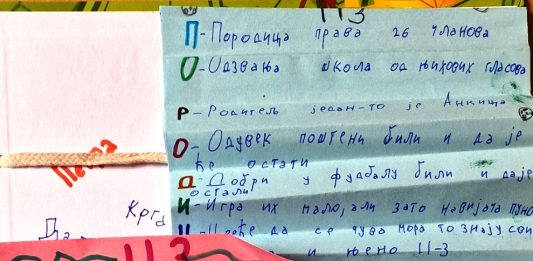 113
П-Породица права 26 чланова
О-Одзвања школа од њихових гласова
Р-Родитељ један-то је Анкица
О-Одувек поштени били и да је
ће остати
Д-Добри у фудбалу били и даје
остали
И-Игра их мало, али зато навијача пуно
да се чува мора то знају сви
и њено II-3
Петра
Да
Крга
113